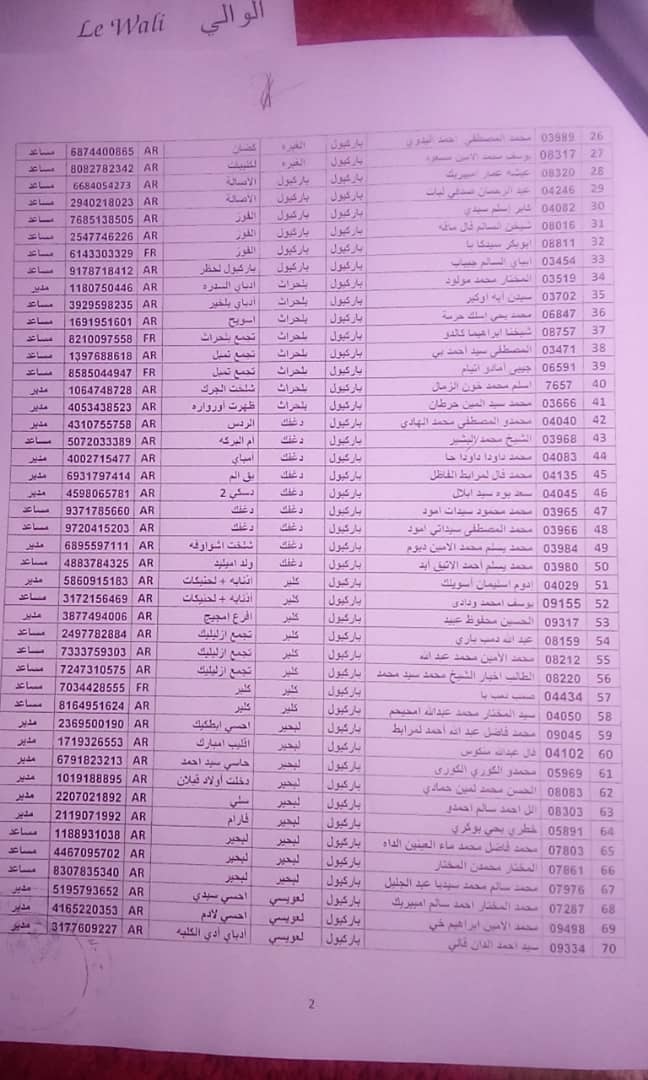 Le Wali الوالي
26 03989 محمد المصطفى احمد البدوي باركيول الغيره كصان AR 6874400865 مساعد
27 08317 يوسف محمد الامين مسعود باركيول الغيره لكليبات AR 8082782342 مساعد
28 08320 عيشه عمار امبيريك باركيول باركيول الاصالة AR 6684054273 مساعد
29 04246 عبد الرحمان صدفي لبات باركيول باركيول الاصالة AR 2940218023 مساعد
30 04082 كابر إسلم سيدي باركيول باركيول الفوز AR 7685138505 مساعد
31 08016 شيخن السالم فال مافه باركيول باركيول الفوز AR 2547746226 مساعد
32 08811 ابوبكر سيدكا با باركيول باركيول الفوز FR 6143303329 مساعد
33 03454 ابباي السالم حبيب باركيول باركيول باركيول لحظر AR 9178718412 مساعد
34 03519 المختار محمد مولود باركيول بلحراث ادباي السدره AR 1180750446 مدير
35 03702 سيدن ابه اوكبر باركيول بلحراث ادباي بلخير AR 3929598235 مساعد
36 06847 محمد يحي إسلك حرمة باركيول بلحراث اسويح AR 1691951601 مساعد
37 08757 شيخنا ابراهيما كالدو باركيول بلحراث تجمع بلحراث FR 8210097558 مساعد
38 03471 المصطفى سيد أحمد بي باركيول بلحراث تجمع تمبل AR 1397688618 مساعد
39 06591 جيبي أمادو اتيام باركيول بلحراث تجمع تمبل FR 8585044947 مساعد
40 7657 اسلم محمد خون الزمال باركيول بلحراث شلخت الجرك AR 1064748728 مدير
41 03666 محمد سيد المين خرطان باركيول بلحراث ظهرت أورواره AR 4053438523 مدير
42 04040 محمدو المصطفى محمد الهادي باركيول دغفك الردس AR 4310755758 مدير
43 03968 الشيخ محمد/البشير باركيول دغفك أم البركه AR 5072033389 مساعد
44 04083 محمد داودا داودا حا باركيول دغفك امباي AR 4002715477 مدير
45 04135 محمد فال لمرابط الفاظل باركيول دغفك بق الم AR 6931797414 مدير
46 04045 سعد بوه سيد ابلال باركيول دغفك دسكي 2 AR 4598065781 مدير
47 03965 محمد محمود سيدات امود باركيول دغفك دغفك AR 9371785660 مساعد
48 03966 محمد المصطفى سيداتي امود باركيول دغفك دغفك AR 9720415203 مساعد
49 03984 محمد يسلم محمد الامين ديوم باركيول دغفك شلخت اشواوفه AR 6895597111 مدير
50 03980 محمد يسلم أحمد الاتيق ابد باركيول دغفك ولد امبليد AR 4883784325 مساعد
51 04029 ادوم اسليمان أسويلك باركيول كلير ادنابه + لحنيكات AR 5860915183 مدير
52 09155 يوسف امحمد ودادى باركيول كلير ادنابه + لحنيكات AR 3172156469 مساعد
53 09317 الحسين محفوظ عبيد باركيول كلير افرع امجيج AR 3877494006 مدير
54 08159 عبد الله دمب باري باركيول كلير تجمع ازليليك AR 2497782884 مساعد
55 08212 محمد الأمين محمد عبد الله باركيول كلير تجمع ازليليك AR 7333759303 مساعد
56 08220 الطالب اخيار الشيخ محمد سيد محمد باركيول كلير تجمع ازليليك AR 7247310575 مساعد
57 04434 صمب دمب با باركيول كلير كلير FR 7034428555 مساعد
58 04050 سيد المختار محمد عبدالله امحيحم باركيول كلير كلير AR 8164951624 مساعد
59 09045 محمد فاضل عبد الله أحمد لمرابط باركيول لبحير احسي ابطكيك AR 2369500190 مدير
60 04102 فال عبدالله سكوس باركيول لبحير اكليب امبارك AR 1719326553 مدير
61 05969 محمدو الكوري الكورى باركيول لبحير حاسي سيد احمد AR 6791823213 مدير
62 08083 الحسن محمد لمين حمادي باركيول لبحير دخلت أولاد قبلان AR 1019188895 مدير
63 08303 الل احمد سالم احمدو باركيول لبحير سلي AR 2207021892 مدير
64 05891 خطري يحي بوكري باركيول لبحير فارام AR 2119071992 مدير
65 07803 محمد فاضل محمد ماء العينين الداه باركيول لبحير لبحير AR 1188931038 مساعد
66 07861 المختار محمدن المختار باركيول لبحير لبحير AR 4467095702 مساعد
67 07976 محمد سالم محمد سيديا عبد الجليل باركيول لبحير لبحير AR 8307835340 مساعد
68 07287 محمد المختار احمد سالم امبيريك باركيول لعويسي احسي سيدي AR 5195793652 مدير
69 09498 محمد الأمين ابراهيم خي باركيول لعويسي احسي لادم AR 4165220353 مدير
70 09334 سيد احمد الدان فالي باركيول لعويسي أدباي أدي الكلبه AR 3177609227 مدير
2